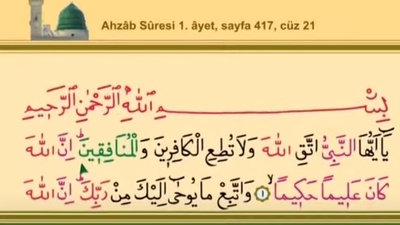 Ahzâb Sûresi 1. âyet, sayfa 417, cüz 21
بِسْمِ اللّٰهِ الرَّحْمٰنِ الرَّحٖيمِ
يَٓا اَيُّهَا النَّبِيُّ اتَّقِ اللّٰهَ وَلَا تُطِعِ الْكَافِرٖينَ وَالْمُنَافِقٖينَۜ اِنَّ اللّٰهَ
كَانَ عَلٖيمًا حَكٖيمًاۙ ﴿١﴾ وَاتَّبِعْ مَا يُوحٰٓى اِلَيْكَ مِنْ رَبِّكَۜ اِنَّ اللّٰهَ